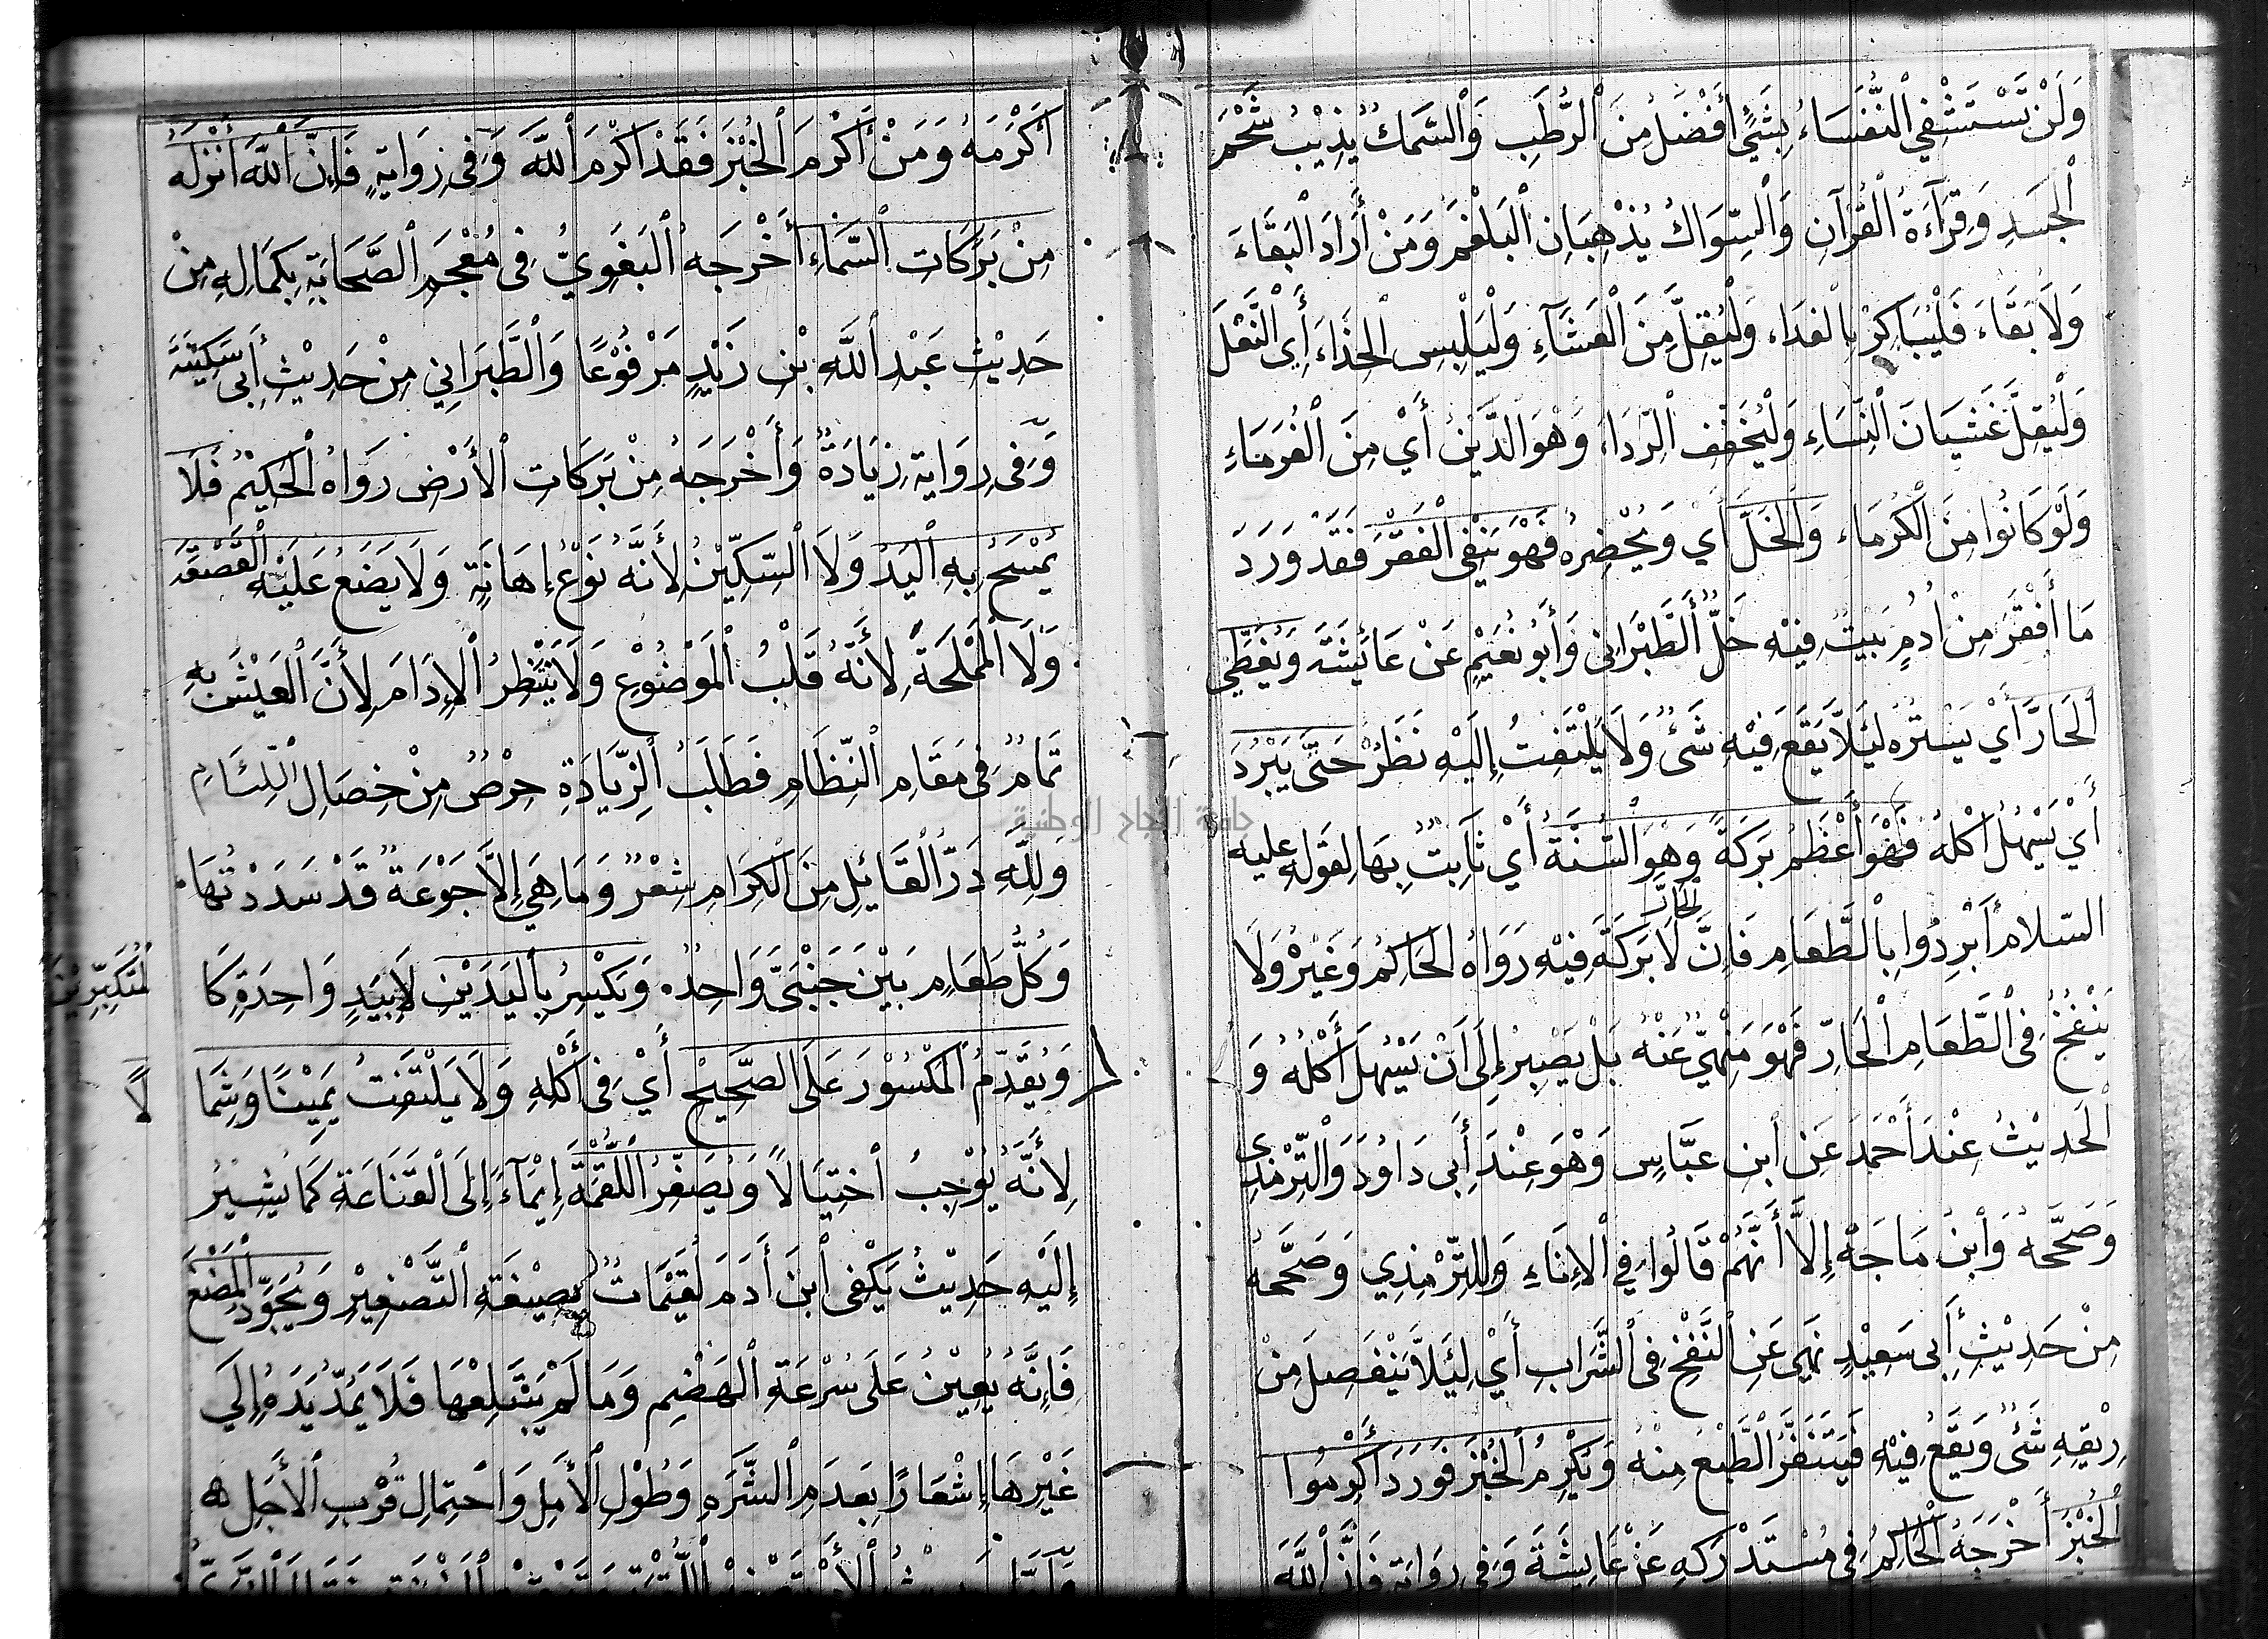 وَلَنْ تَسْتَشْفِي ٱلنُّفَسَاءُ بِشَيْءٍ أَفْضَلُ مِنَ ٱلرُّطَبِ وَٱلسَّمَكُ يُذِيْبُ شَحْمَ
ٱلْجَسَدِ وَقِرَآءَةُ ٱلْقُرْآنِ وَٱلسِّوَاكُ يُذْهِبَانِ ٱلْبَلْغَمَ وَمَنْ أَرَادَ ٱلْبَقَاءَ
وَلَا بَقَاءَ فَلْيُبَاكِرْ بِالْغَدَاءِ وَلْيُقِلَّ مِنَ ٱلْعَشَآءِ وَلْيَلْبِسِ ٱلْحِذَاءَ أَيِ ٱلنَّعْلَ
وَلْيُقِلَّ غَشَيَانَ ٱلنِّسَاءِ وَلْيُخَفِّفِ ٱلرِّدَاءَ وَهْوَ الدَّيْنُ أَيْ مِنَ ٱلْغُرَمَاءِ
وَلَوْ كَانُوا مِنَ ٱلْكُرَمَاءِ وَٱلْخَلَّ أَي وَيُحْضِرُهُ فَهْوَ يَنْفِي ٱلْفَقْرَ فَقَدْ وَرَدَ
مَا أَفْقَرَ مِنْ أُدُمٍ بَيْتٌ فِيْهِ خَلٌّ ٱلطَّبْرَانِي وَأَبُو نُعَيْمٍ عَنْ عَائِشَةَ وَيُغَطِّي
ٱلْحَارَّ أَيْ يَسْتُرُهُ لِئَلَّا يَقَعَ فِيْهِ شَئٌ وَلَا يَلْتَفِتُ إِلَيْهِ نَظَرٌ حَتَّى يَبْرُدَ
أَيْ يَسْهُلُ أَكْلُهُ فَهْوَ أَعْظَمُ بَرَكَةً وَهِوَ ٱلسُّنَّةُ أَيْ ثَابِتٌ بِهَا لِقَوْلِهِ عليه
السّلام أَبْرِدُوا بِٱلطَّعَامِ فَإِنَّ ٱلْحَارَّ لَا بَرَكَةَ فِيْهِ رَوَاهُ الْحَاكِمُ وَغَيْرُهُ وَلَا
يَنْفُخُ فِي ٱلطَّعَامِ ٱلْحَارِّ فَهْوَ مَنْهِيٌّ عَنْهُ بَلْ يَصْبِرُ إِلَى أَنْ يَسْهُلَ أَكْلُهُ وَ
ٱلْحَدِيْثُ عِنْدَ أَحْمَدَ عَنِ ٱبْنِ عَبَّاسٍ وَهْوَ عِنْدَ أَبِي دَاوُدَ وَٱلتِّرْمِذِي
وَصَحَّحَهُ وَٱبْنُ مَاجَهْ إِلَّا أَنَّهُمْ قَالُوا فِي ٱلْإِنَاءِ وَلِلتِّرْمِذِي وَصَحَّحَهُ
مِنْ حَدِيْثِ أَبِي سَعِيْدٍ نَهَى عَنِ ٱلنَّفْخِ فِي ٱلشَّرَابِ أَيْ لِئَلَّا يَنْفَصِلَ مِنْ
رِيْقِهِ شَئٌ وَيَقَعُ فِيْهِ فَيَتَنَفَّرُ ٱلطَّبْعُ مِنْهُ وَيُكْرِمُ ٱلْخُبْزَ فَوَرَدَ أَكْرِمُوا
ٱلْخُبْزَ أَخْرَجَهُ ٱلْحَاكِمُ فِي مُسْتَدْرَكِهِ عَنْ عَايِشَةَ وَفِي رِوَايَةٍ فَإِنَّ ٱللَّهَ
أَكْرَمَهُ وَمَنْ أَكْرَمَ ٱلْخُبْزَ فَقَدْ أَكْرَمَ ٱللَّهَ وَفِي رِوَايَةٍ فَإِنَّ ٱللَّهَ أَنْزَلَهُ
مِنْ بَرَكَاتِ ٱلسَّمَاءِ أَخْرَجَهُ ٱلْبَغَوِيُّ فِي مُعْجَمِ ٱلصَّحَابَةِ بِكَمَالِهِ مِنْ
حَدِيْثِ عَبْدِ ٱللَّهِ بْنِ زَيْدٍ مَرْفُوْعًا وَٱلطَّبَرَانِي مِنْ حَدِيْثِ أَبِي سَكِيْنَةَ
وَفِي رِوَايَةٍ زِيَادَةٌ وَأَخْرَجَهُ مِنْ بَرَكَاتِ ٱلْأَرْضِ رَوَاهُ ٱلْحَكِيْمُ فَلَا
يُمْسَحُ بِهِ ٱلْيَدُ وَلَا ٱلسِّكِّيْنُ لِأَنَّهُ نَوْعُ إِهَانَةٍ وَلَا يَضَعُ عَلَيْهِ ٱلْقَصْعَةَ
وَلَا ٱلْمَمْلَحَةَ لِأَنَّهُ قَلْبُ ٱلْمَوْضُوْعِ وَلَا يَنْتَظِرُ ٱلْإِدَامَ لِأَنَّ ٱلْعَيْشَ بِهِ
تَمَامٌ فِي مَقَامِ ٱلنِّظَامِ فَطَلَبُ ٱلزِّيَادَةِ حِرْصٌ مِنْ خِصَالِ ٱللِّئَامِ
وَلِلَّهِ دَرُّ ٱلْقَائِلِ مِنَ ٱلْكِرَامِ شِعْرٌ وَمَا هِيَ إِلَّا جَوْعَةٌ قَدْ سَدَدْتُهَا
وَكُلُّ طَعَامٍ بَيْنَ جَنْبَيَّ وَاحِدُ وَيَكْسِرُ بِٱلْيَدَيْنِ لَا بِيَدٍ وَاحِدَةٍ كَا
لْمُتَكَبِّرِيْنَ
وَيُقَدِّمُ ٱلْمَكْسُوْرَ عَلَى ٱلصَّحِيْحِ أَيْ فِي أَكْلِهِ وَلَا يَلْتَفِتُ يَمِيْنًا وَشِمَا
لًا
لِأَنَّهُ يُوْجِبُ ٱخْتِيَالًا وَيُصَغِّرُ ٱللُّقْمَةَ إِيْمَآءً إِلَى ٱلْقَنَاعَةِ كَمَا يُشِيْرُ
إِلَيْهِ حَدِيْثُ يَكْفِي ٱبْنَ أَدَمَ لُقَيْمَاتٌ بِصِيْغَةِ ٱلتَّصْغِيْرِ وَيُجَوِّدُ ٱلْمَضْغَ
فَإِنَّهُ يُعِيْنُ عَلَى سُرْعَةِ ٱلْهَضْمِ وَمَا لَمْ يَبْتَلِعْهَا فَلَا يَمُدُّ يَدَهُ إِلَي
غَيْرِهَا إِشْعَارًا بِعَدَمِ ٱلشَّرَهِ وَطُوْلِ ٱلْأَمَلِ وَٱحْتِمَالِ قُرْبِ ٱلْأَجَلِ